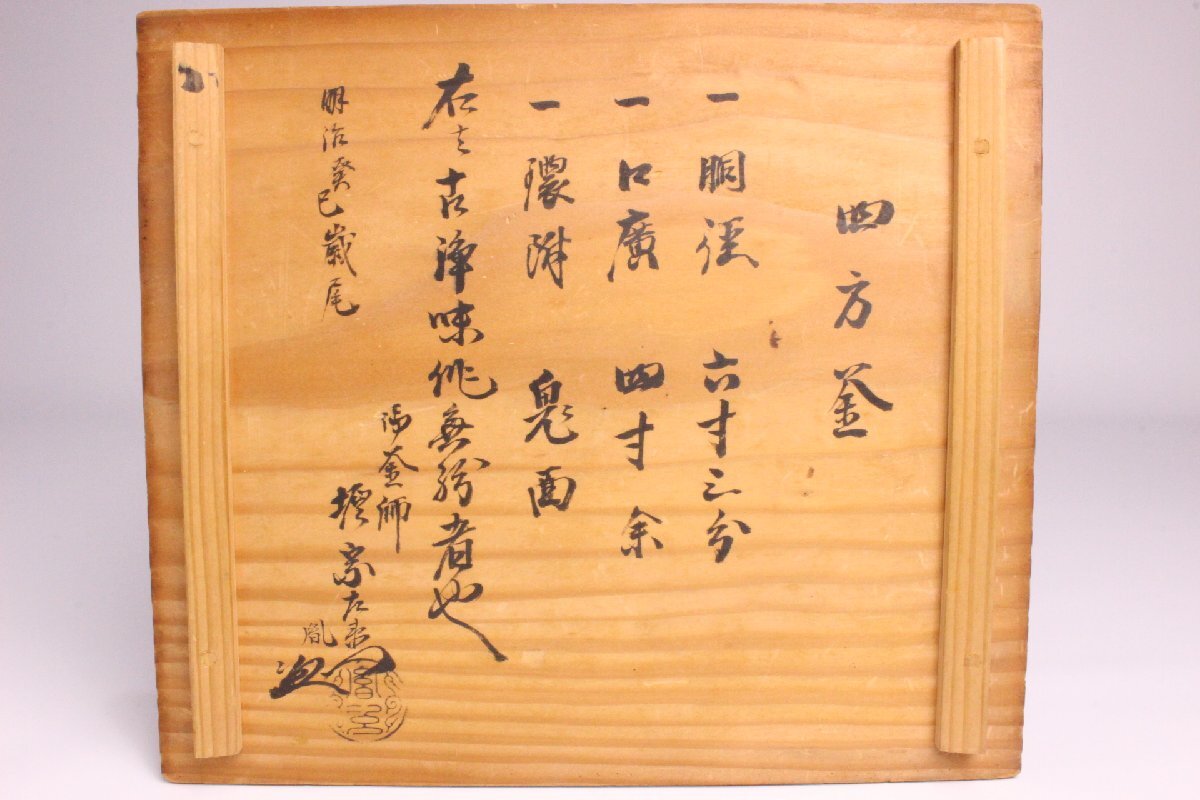 四方釜
一 胴径 六寸三分
一 口廣 四寸余
一 環附 鬼面
右者古浄味作無紛者也
明治癸巳歳尾
御釜師
堰宗左衛門
胤